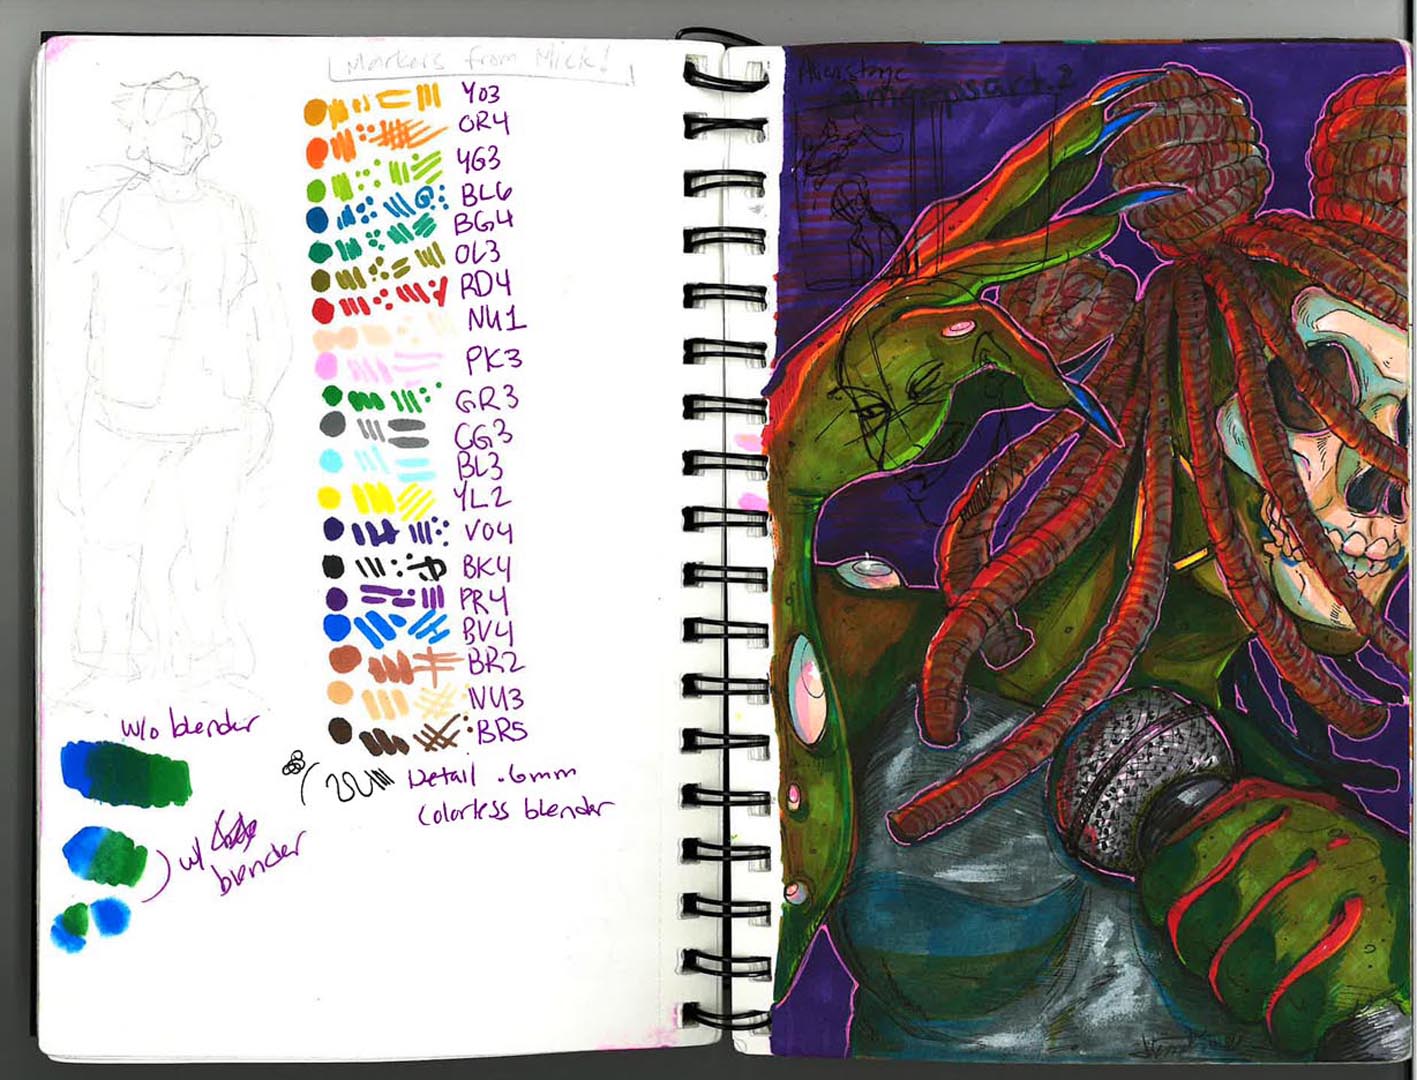 Markers from Mick!
YO3
OR4
YG3
BL6
BG4
OL3
RD4
NU1
PK3
GR3
CG3
BL3
YL2
VO4
BK4
PR4
BV4
BR2
NU3
BR5
Detail .6mm
Colorless blender
w/o blender
w/
blender